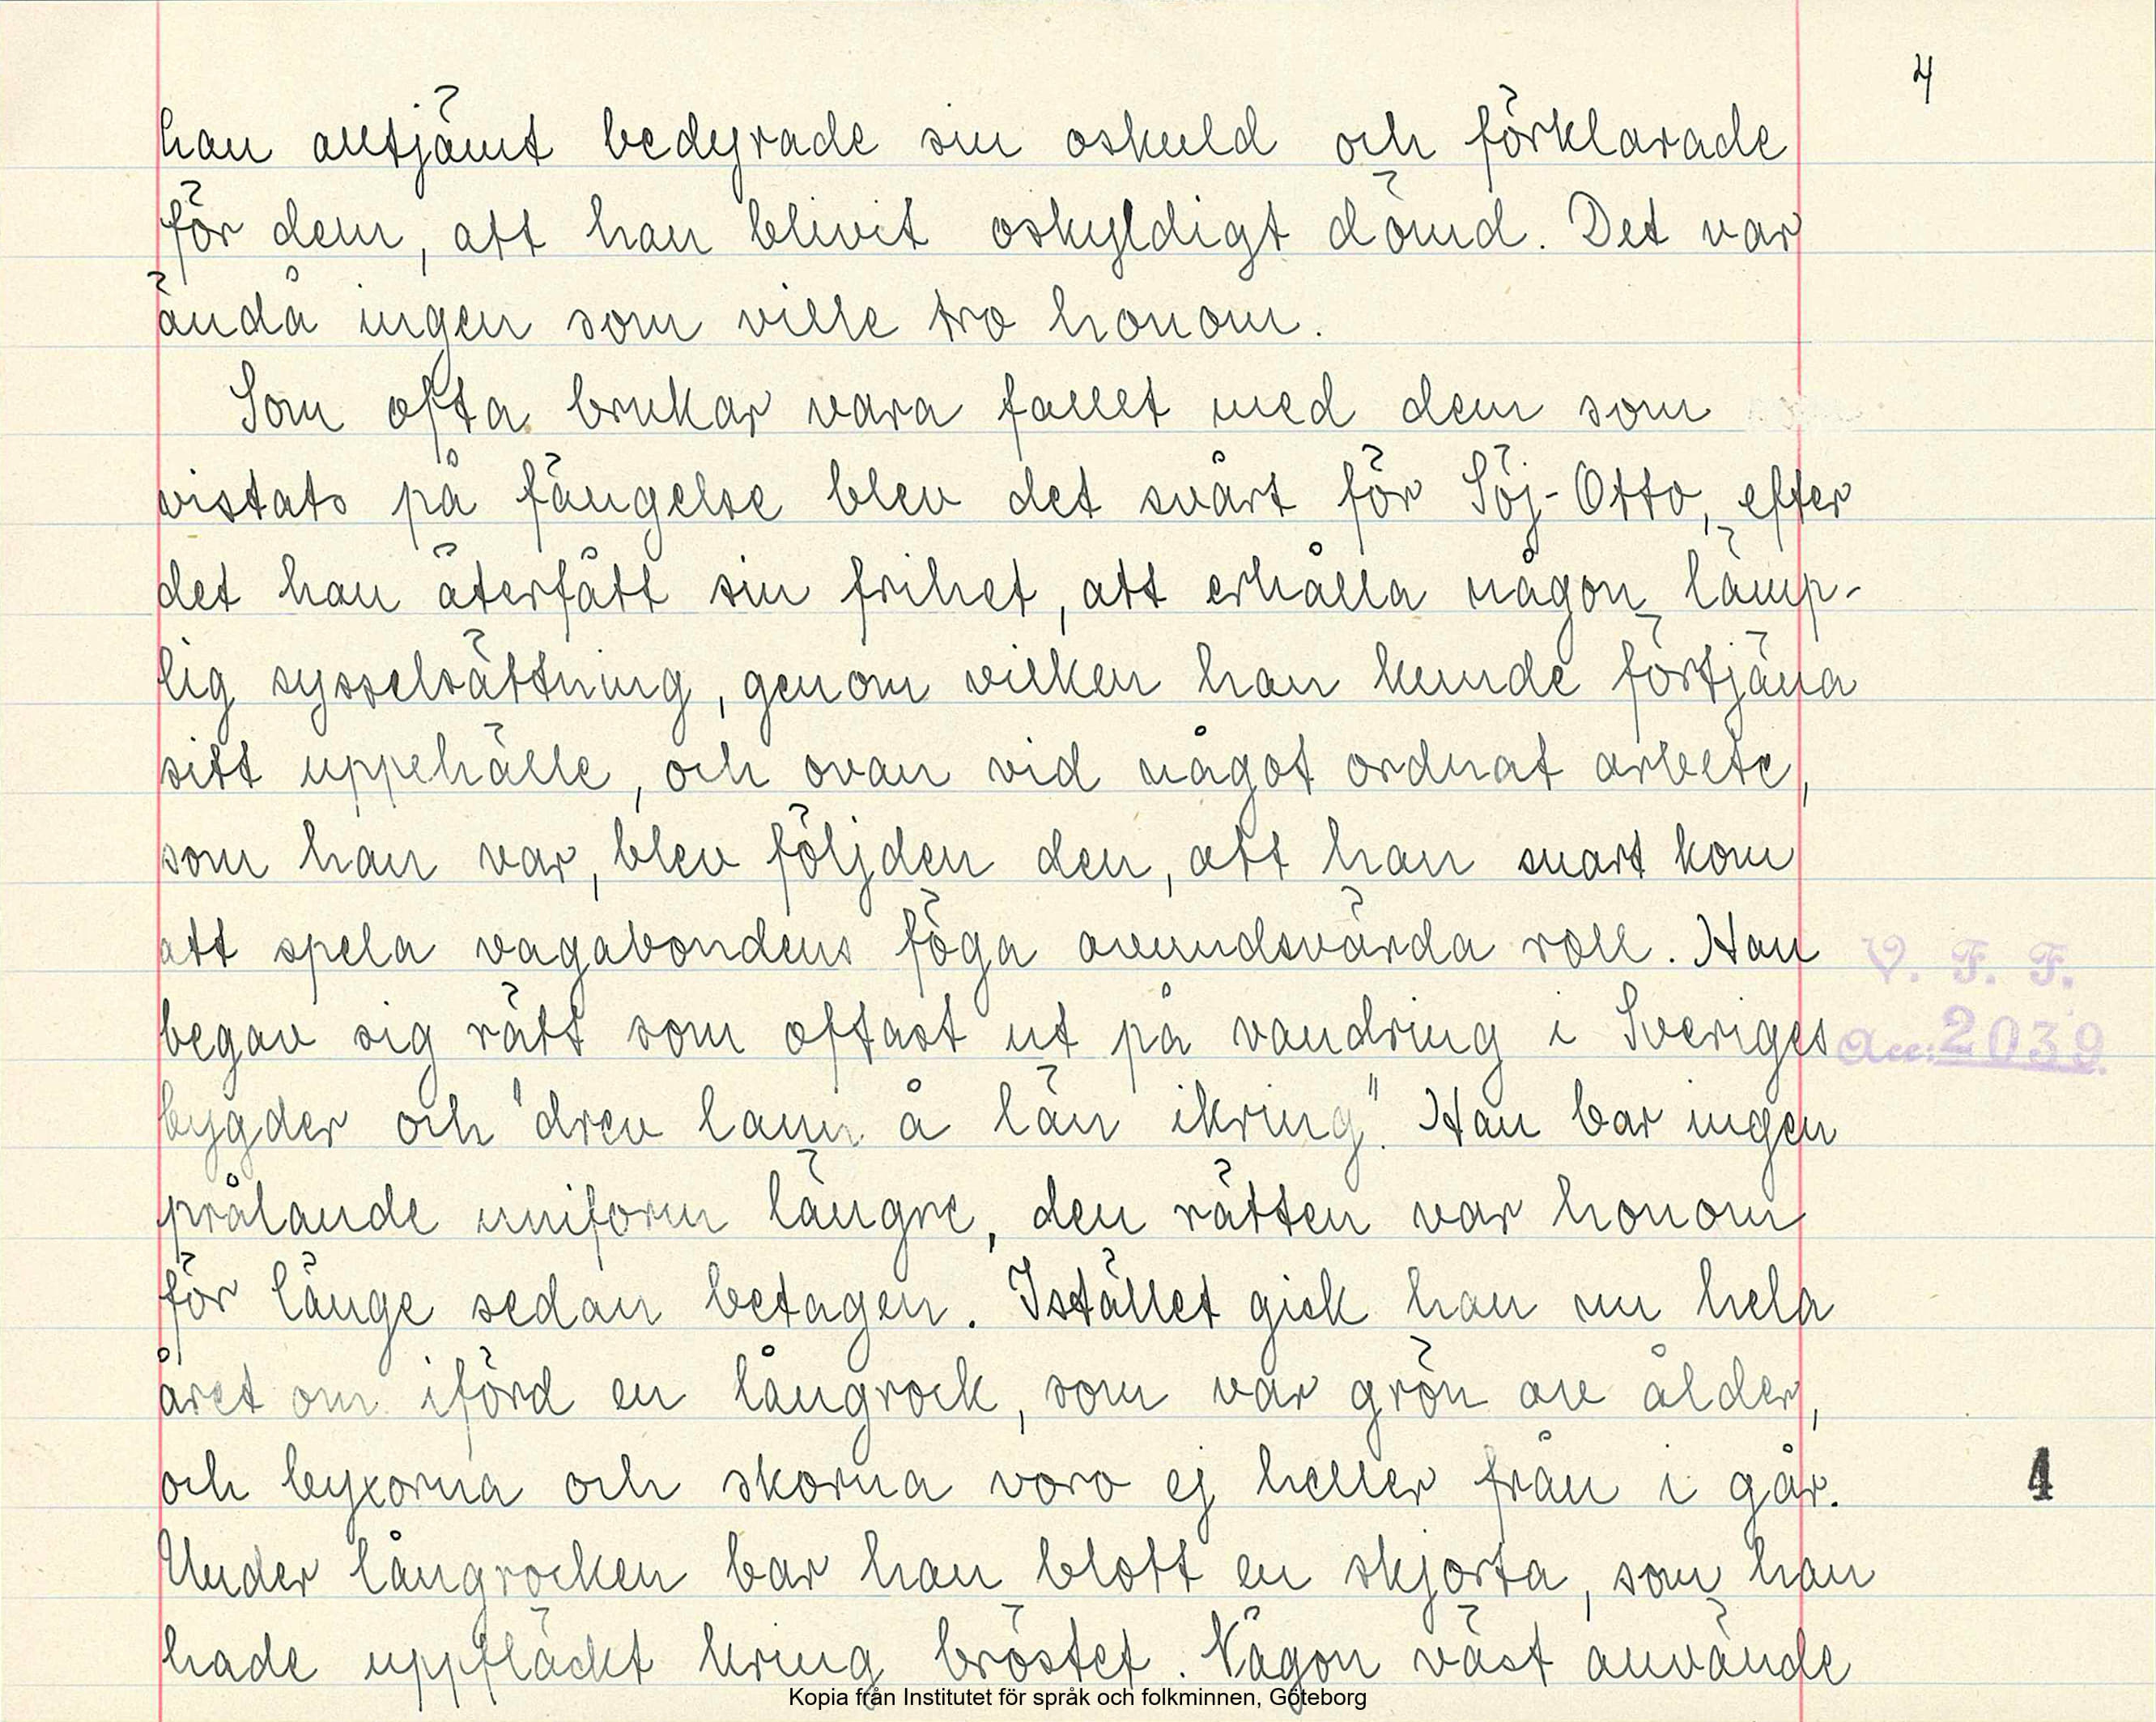 4
han alltjämt bedyrade sin oskuld och förklarade
för dem, att han blivit oskyldigt dömd. Det var
ändå ingen som ville tro honom.
Som ofta brukar vara fallet med dem som
vistats på fängelse blev det svårt för Söj-Otto, efter
det han återfått sin frihet, att erhålla någon lämp-
lig sysselsättning, genom vilken han kunde förtjäna
sitt uppehälle, och ovan vid något ordnat arbete,
som han var, blev följden den, att han snart kom
att spela vagabondens föga avundsvärda roll. Han
begav sig rätt som oftast ut på vandring i Sveriges
bygder och "drev lann å län ikring". Han bar ingen
prålande uniform längre, den rätten var honom
för länge sedan betagen. Istället gick han nu hela
året om iförd en långrock, som var grön av ålder,
och byxorna och skorna voro ej heller från i går.
Under långrocken bar han blott en skjorta, som han
hade uppfläckt kring bröstet. Någon väst använde
V. F. F.
Acc: 2039
4
Kopia från Institutet för språk och folkminnen, Göteborg